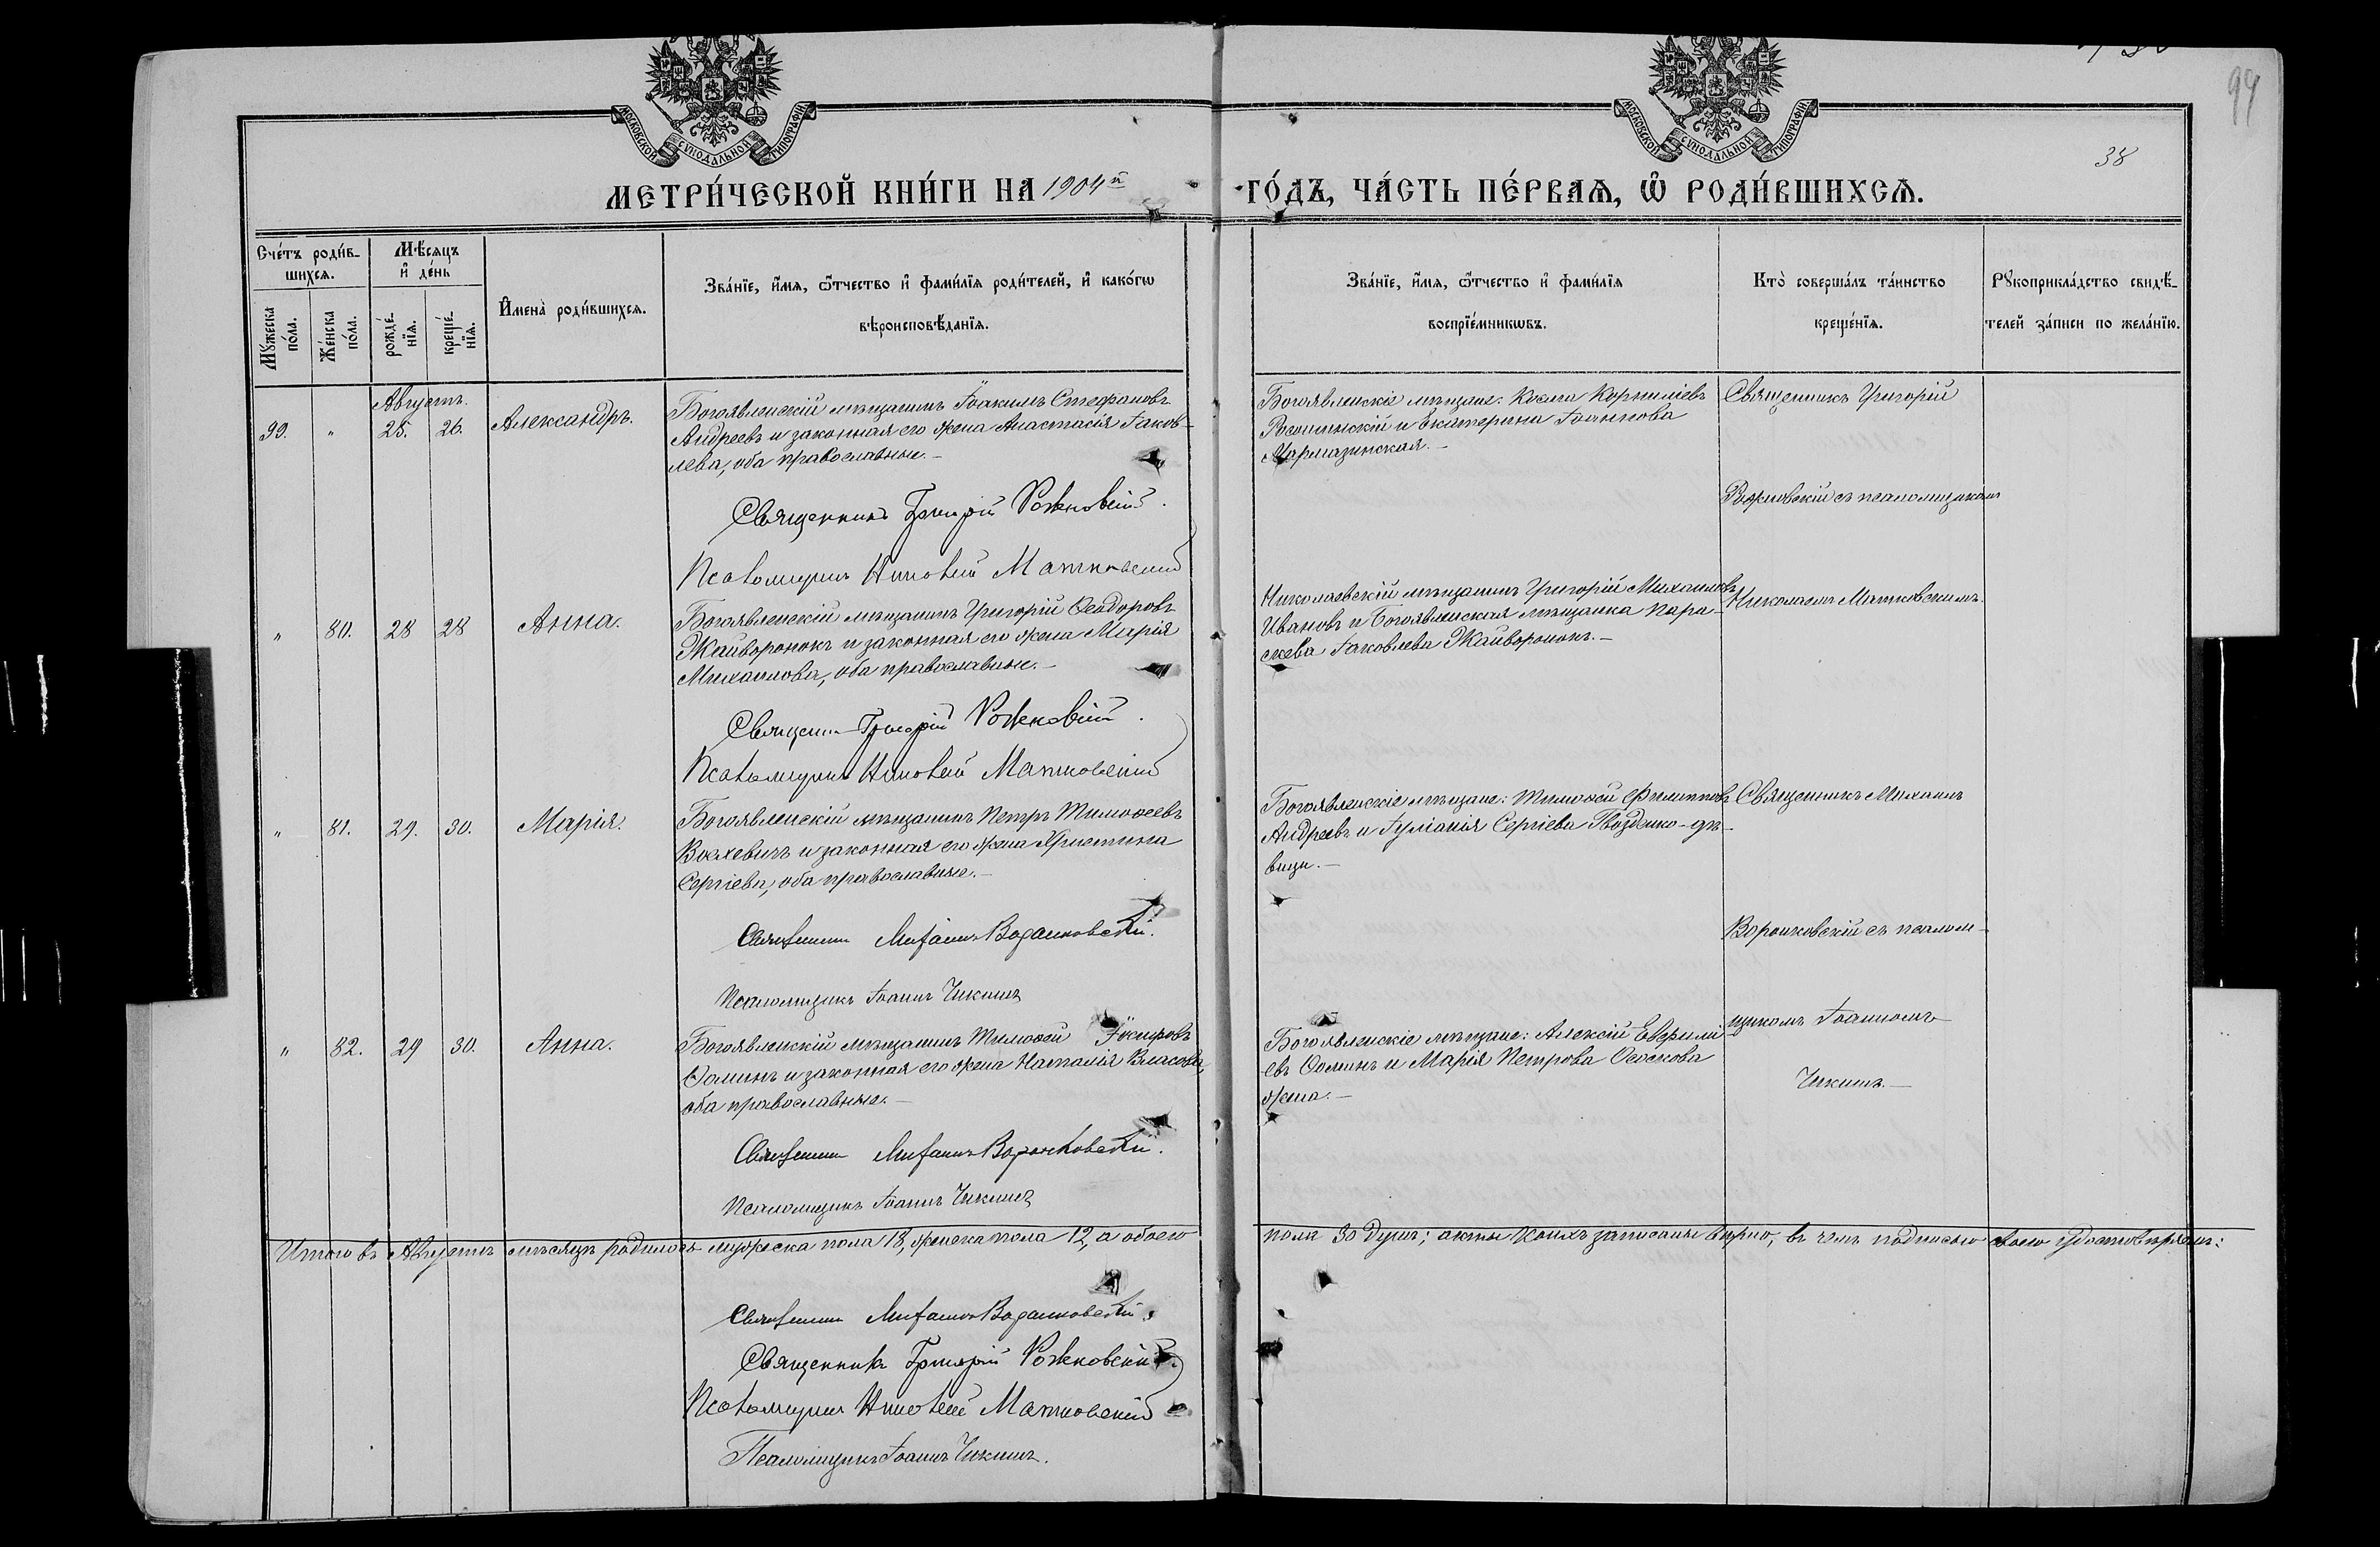 99
38
МОСКОВСКОЙ СѴНОДАЛЬНОЙ ТИПОГРАФІИ
МОСКОВСКОЙ СѴНОДАЛЬНОЙ ТИПОГРАФІИ
МЕТРИ́ЧЕСКОЙ КНИ́ГИ НА 1904й
ГО́ДЪ, ЧА́СТЬ ПЕ́РВАѦ, Ѡ҆ РОДИ́ВШИХСѦ.
Сче́тъ роди́в-
шихсѧ.
Мꙋжеска по́ла.
Же́нска по́ла.
Мѣ́сѧцъ
и҆ де́нь
рожде́-
нїѧ.
креще́-
нїѧ.
И҆мена̀ роди́вшихсѧ.
Зва́нїе, и҆́мѧ, ѻ҆́тчество и҆ фами́лїѧ роди́телей, и҆ како́гѡ
вѣроисповѣ́данїѧ.
Зва́нїе, и҆́мѧ, ѻ҆́тчество и҆ фами́лїѧ
воспрїе́мникѡвъ.
Кто̀ соверша́лъ та́инство
креще́нїѧ.
Рꙋкоприкла́дство свидѣ́-
телей за́писи по жела́нїю.
Августъ.
99. " 25. 26. Александръ.
Богоявленскій мѣщанинъ Іоакимъ Стефановъ
Андреевъ и законная его жена Анастасія Іаков-
лева, оба православные.-
Священникъ Григорій Рожковскій.
Псаломщикъ Николай Матковскій
Богоявленскіе мѣщане: Косма Корниліевъ
и Екатерина Іоаннова
Священникъ Григорій
Рожковскій съ псаломщикомъ
Николаемъ Матковскимъ.
" 80. 28 28 Анна.
Богоявленскій мѣщанинъ Григорій Ѳеодоровъ
Жайворонокъ и законная его жена Марія
Михаилова, оба православные.-
Священн Григорій Рожковскій.
Псаломщикъ Николай Матковскій
Николаевскій мѣщанинъ Григорій Михаиловъ
Ивановъ и Богоявленская мѣщанка Пара-
скева Іаковлева Жайворонокъ.-
" 81. 29. 30. Марія.
Богоявленскій мѣщанинъ Петръ Тимоѳеевъ
и законная его жена Христина
Сергіева, оба православные.-
Священникъ Михаилъ Воронковскій.
Псаломщикъ Іоаннъ Чикинъ
Богоявленскіе мѣщане: Тимоѳей Филипповъ
Андреевъ и Іуліанія Сергіева Гвозденко-дѣ-
вица.-
Священникъ Михаилъ
Воронковскій съ псалом-
щикомъ Іоанномъ
Чикинъ.-
" 82. 29 30. Анна.
Богоявленскій мѣщанинъ Тимоѳей
Ѳоминъ и законная его жена Наталія Власова,
оба православные.-
Священникъ Михаилъ Воронковскій.
Псаломщикъ Іоаннъ Чикинъ
Богоявленскіе мѣщане: Алексій
евъ Ѳоминъ и Марія Петрова
жена.-
Итого въ Августѣ мѣсяцѣ родилось мужеска пола 18, женска пола 12, а обоего
пола 30 душъ; акты коихъ записаны вѣрно, въ чемъ подписью своею удостовѣряемъ:
Священникъ Михаилъ Воронковскій.
Священникъ Григорій Рожковскій.
Псаломщикъ Николай Матковскій
Псаломщикъ Іоаннъ Чикинъ.